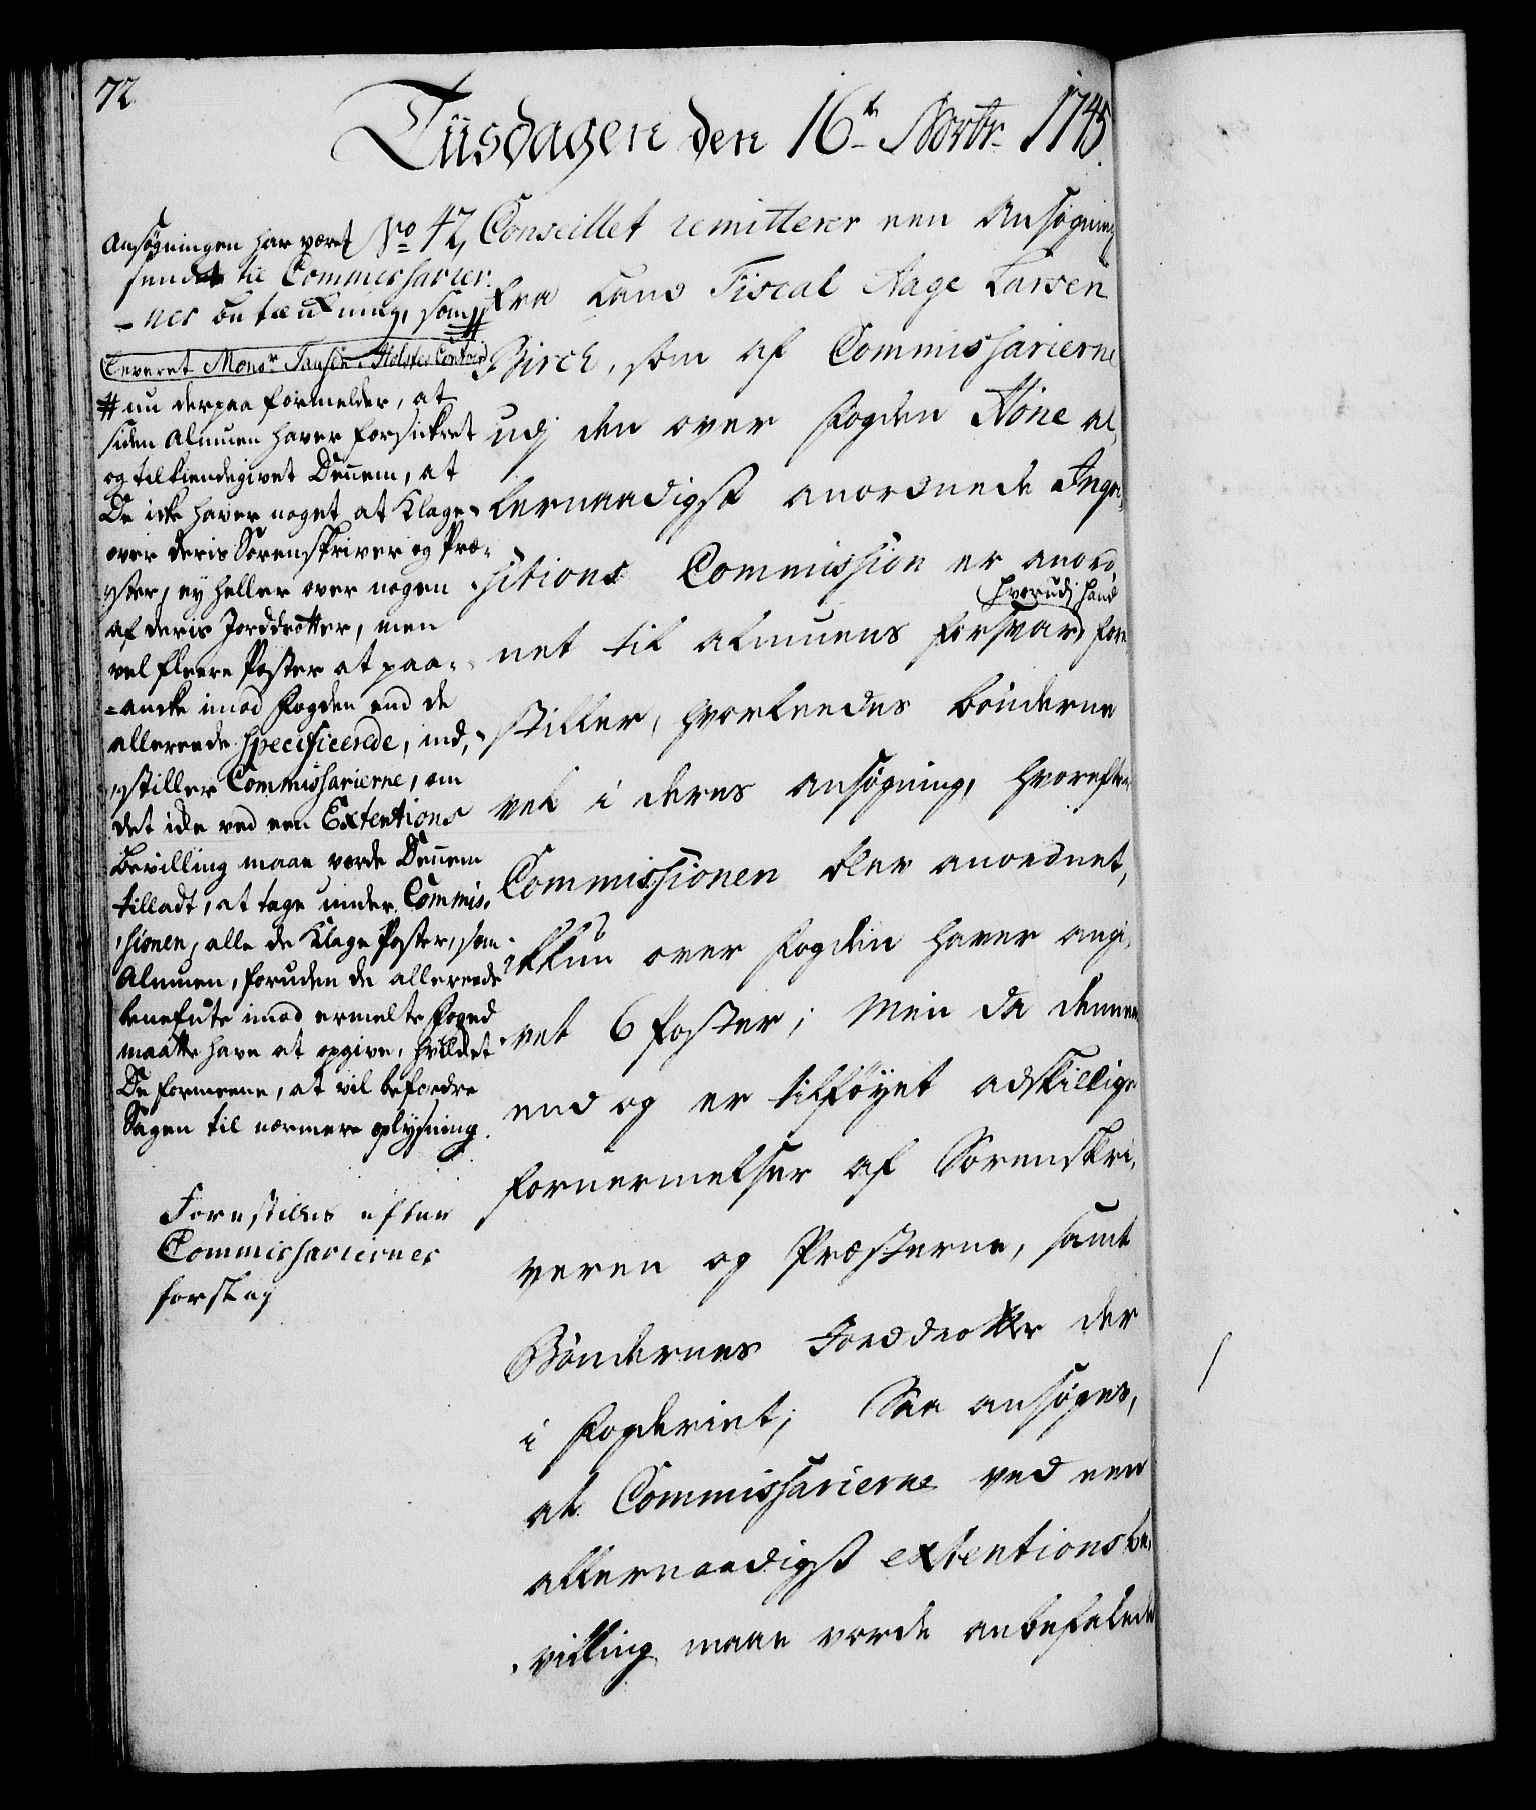 72.
Tiisdagen den 16de Novbr 1745.
Ansøgningen har været
sendt til Commissarier-
-nes betænkning, som #
Leveret Monsr Tausen Holsts Contoir
# nu derpaa formelder, at
siden Almuen haver forsickret
og tilkiendegivet Dennem, at
De icke haver noget at Klage
over deris Sorenskriver og Præ-
ster, ey heller over nogen
af deris Jorddrotter, men
vel fleere Poster at paa-
-ancke imod Fogden end de
allereede specificerede, ind-
-stiller Commissarierne, om
det icke ved een Extentions
Bevilling maae vorde Dennem
tilladt, at tage under Commis-
-sionen, alle de Klage Poster, som
Almuen, foruden de allereede
benefnte imod ermelte Foged
maatte have at opgive, hvilcket
De formeene, at vil befordre
Sagen til nærmere oplysning.
Forestilles efter
Commissariernes
forslag
No 42, Conseillet remitterer een Ansøgning
fra Land Fiscal Aage Larsen
Birch, som af Commissarierne
udj den over Fogden Höne al-
lernaadigst anordnede Inqvi-
sitions Commission er anord-
net til almuens forsvar, hvorudj hand fore
stiller, hvorleedes bönderne
vel i deres ansøgning, hvorefter
Commissionen blev anordnet,
ickun over fogden haver angi-
vet 6 poster; Men da dennem
end og er tilföyet adskillige
fornermelser af Sorenskri-
veren og Præsterne, samt
Böndernes Jorddrotter der
i fogderiet; Saa ansøges,
at Commissarierne ved een
allernaadigst extentions be-
villing maae vorde anbefalede